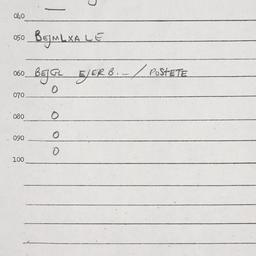 040
050 BEJMLXA LE
060 BEJGL EJERB.../ POSTETE
070 0
080 0
090 0
0
100